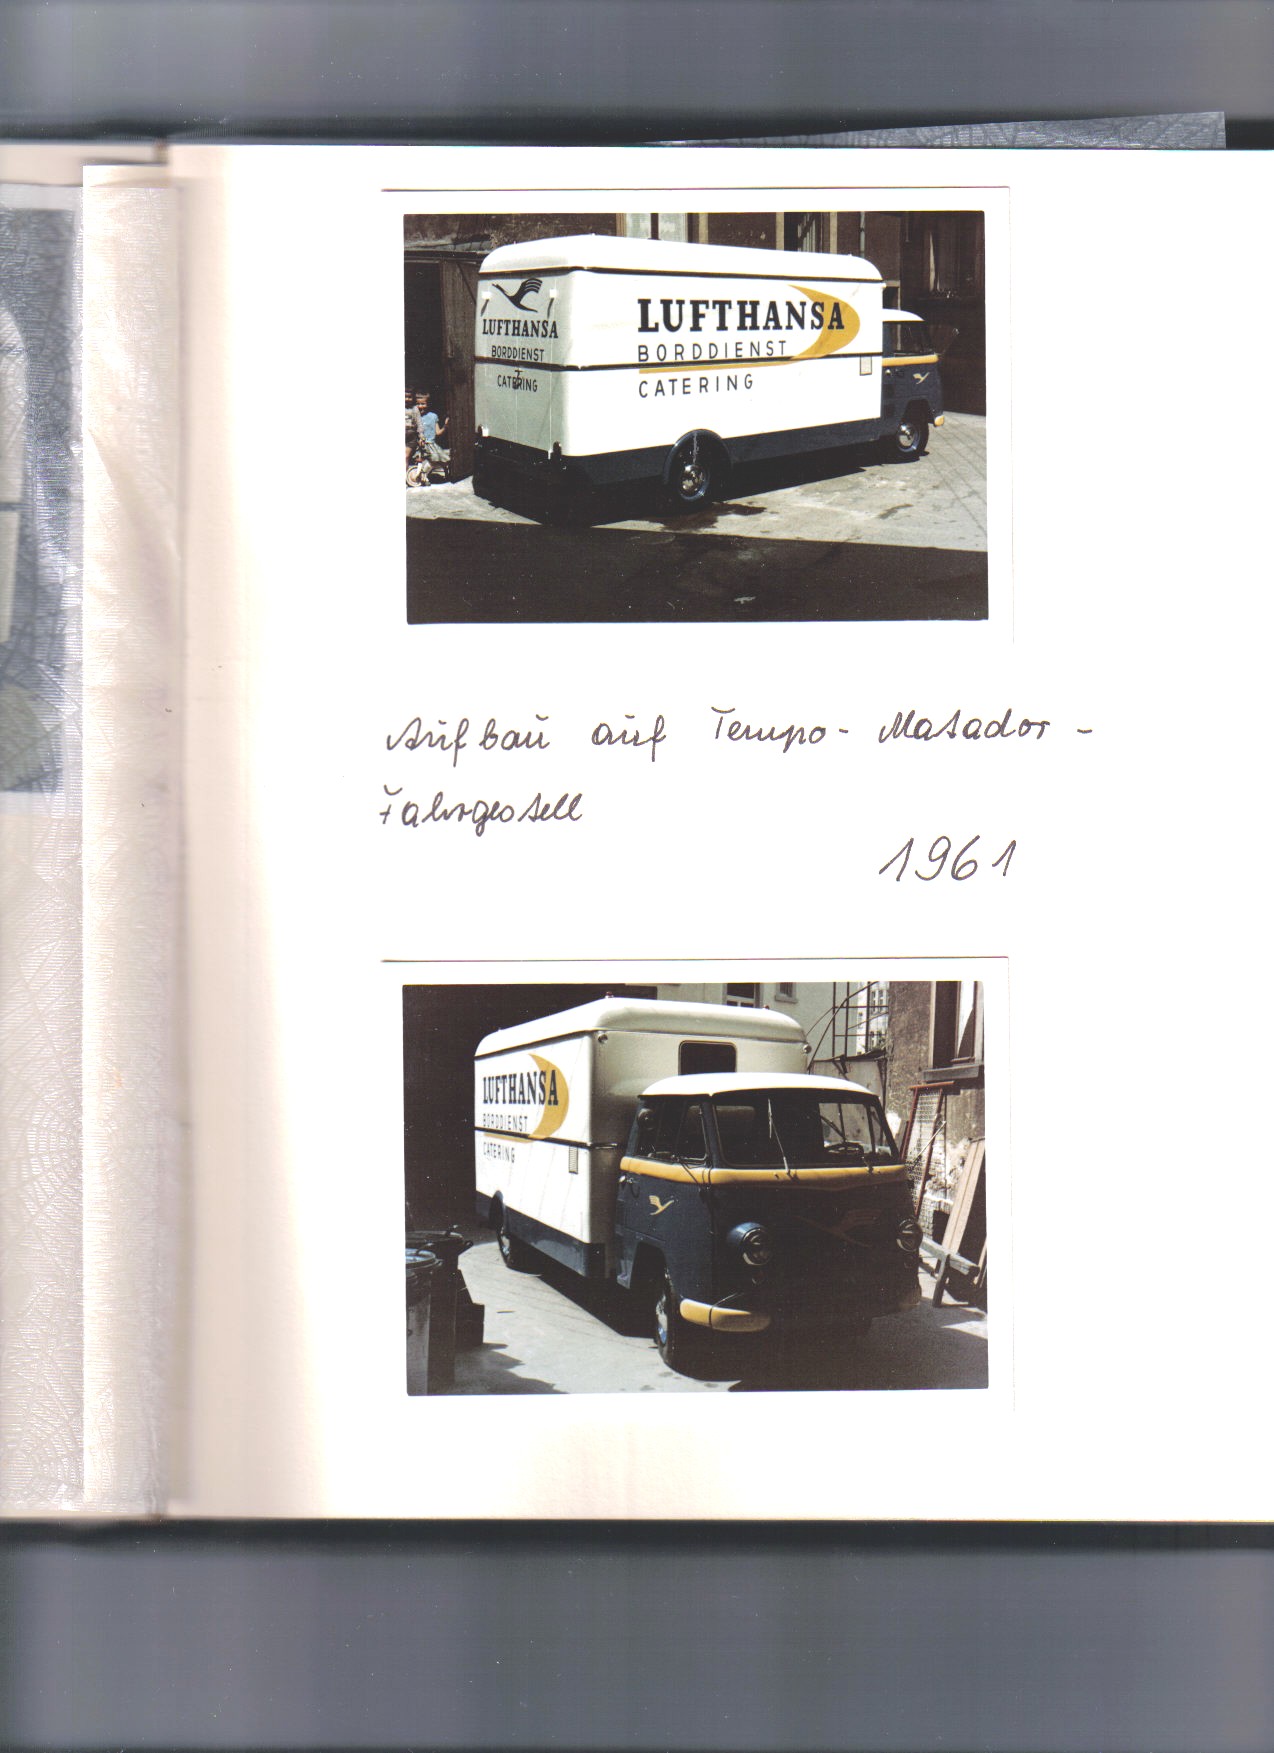 LUFTHANSA
BORDDIENST
CATERING
LUFTHANSA
BORDDIENST
CATERING
Aufbau auf Tempo-Matador-
Fahrgestell
1961
LUFTHANSA
BORDDIENST
CATERING